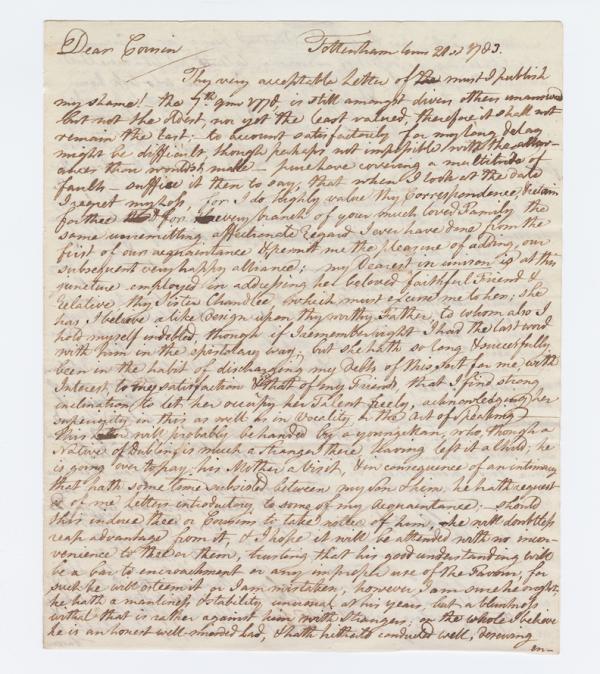 Dear Cousin
Tottenham 20 1783.
Thy very acceptable Letter of the must I publish
my shame! - the 7th 1778, is still amongst divers others unanswered
but not the oldest, nor yet the least valued, therefore it shall not
remain the last; - to account satisfactorily for my long delay
might be difficult, though perhaps not impossible with the
ances thou wouldst make - pure love covering a multitude of
faults - suffice it then to say, that when I look at the date
I regret my loss, for I do highly value thy Correspondence, & retain
for thee & for every branch of your much loved Family the
same unremitting affectionate Regard I ever have done from the
first of our acquaintance & permit me the pleasure of adding, our
subsequent very happy alliance; my Dearest in unison is at this
juncture employed in addressing her beloved faithful Friend &
relative thy Sister Chandlee, which must excuse me to her; she
has I believe a like design upon thy worthy Father, to whom also I
hold myself indebted, though if I remember right I had the last word
with him in the epistolary way, but she hath so long & successfully
been in the habit of discharging my Debts of this sort for me with
Interest, to my satisfaction & that of my Friends, that I find strong
inclination to let her occupy her Talent freely, acknowledging her
superiority in this as well as in Vocality, or the art of speaking
This will probably be handed by a young Man, who, though a
Native of Dublin, is much a Stranger there, having left it a Child; he
is going over to pay his Mother a Visit, & in consequence of an intimacy
that hath some time subsisted between my Son & him, he hath request
ed of me Letters introductory to some of my Acquaintance; - should
this induce thee or Cousins to take notice of him, he will doubtless
reap advantage from it, & I hope it will be attended with no incon-
venience to thee or them, trusting that his good understanding will
be a bar to encroachment or any improper use of the Favour, for
such he will esteem it or I am mistaken, however, I am sure he ought,
he hath a manliness & stability unusual at his years, but a bluntness
withal that is rather against him with Strangers, on the whole I believe
he is an honest well-minded Lad, & hath hitherto conducted well, deserving
en-